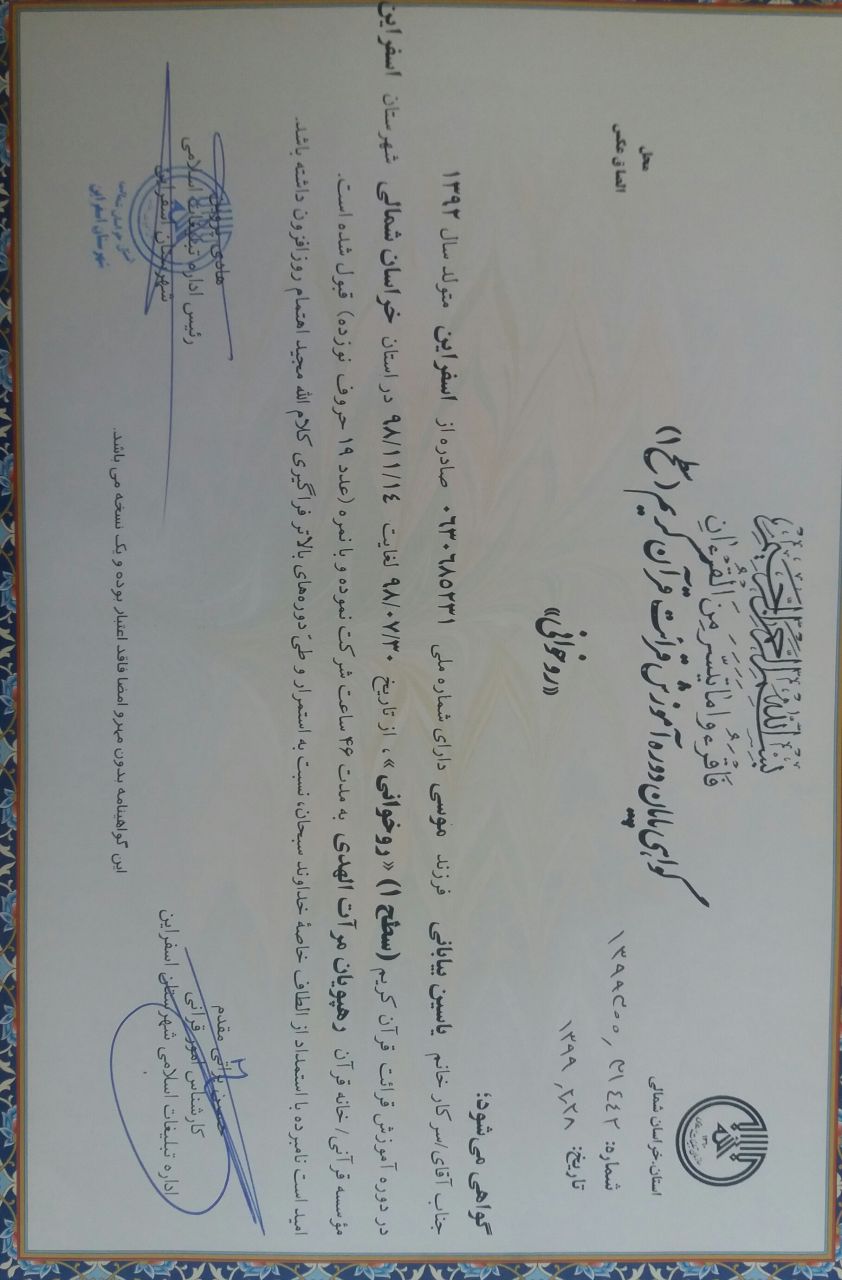 بسم الله الرحمن الرحیم
فَاقرَءُوا مَا تَیَسَّرَ مِنَ القُرءَانِ
گواهی پایان دوره آموزش قرائت قرآن کریم (سطح ۱)
«روخوانی»
استان: خراسان شمالی
شماره:
تاریخ: ۱۳۹۹٫۲٫۲۸
محل
الصاق عکس
گواهی می‌شود؛
جناب آقای/سرکار خانم یاسین بیابانی فرزند موسی دارای شماره ملی ۰۶۳۰۶۸۵۲۳۱ صادره از اسفراین متولد سال ۱۳۹۲
در دوره آموزش قرائت قرآن کریم (سطح ۱) «روخوانی»، از تاریخ ۹۸/۰۷/۳۰ لغایت ۹۸/۱۱/۱۴ در استان خراسان شمالی شهرستان اسفراین
مؤسسه قرآنی/خانه قرآن رهپویان مرآت الهدی به مدت ۴۶ ساعت شرکت نموده و با نمره (عدد ۱۹ حروف نوزده) قبول شده است.
امید است نامبرده با استمداد از الطاف خاصهٔ خداوند سبحان، نسبت به استمرار و طیّ دوره‌های بالاتر فراگیری کلام الله مجید اهتمام روزافزون داشته باشد.
براتی مقدم
کارشناس امور قرآنی
اداره تبلیغات اسلامی شهرستان اسفراین
هادی
رئیس اداره تبلیغات اسلامی
شهرستان اسفراین
شهرستان اسفراین
این گواهینامه بدون مهر و امضا فاقد اعتبار بوده و یک نسخه می باشد.